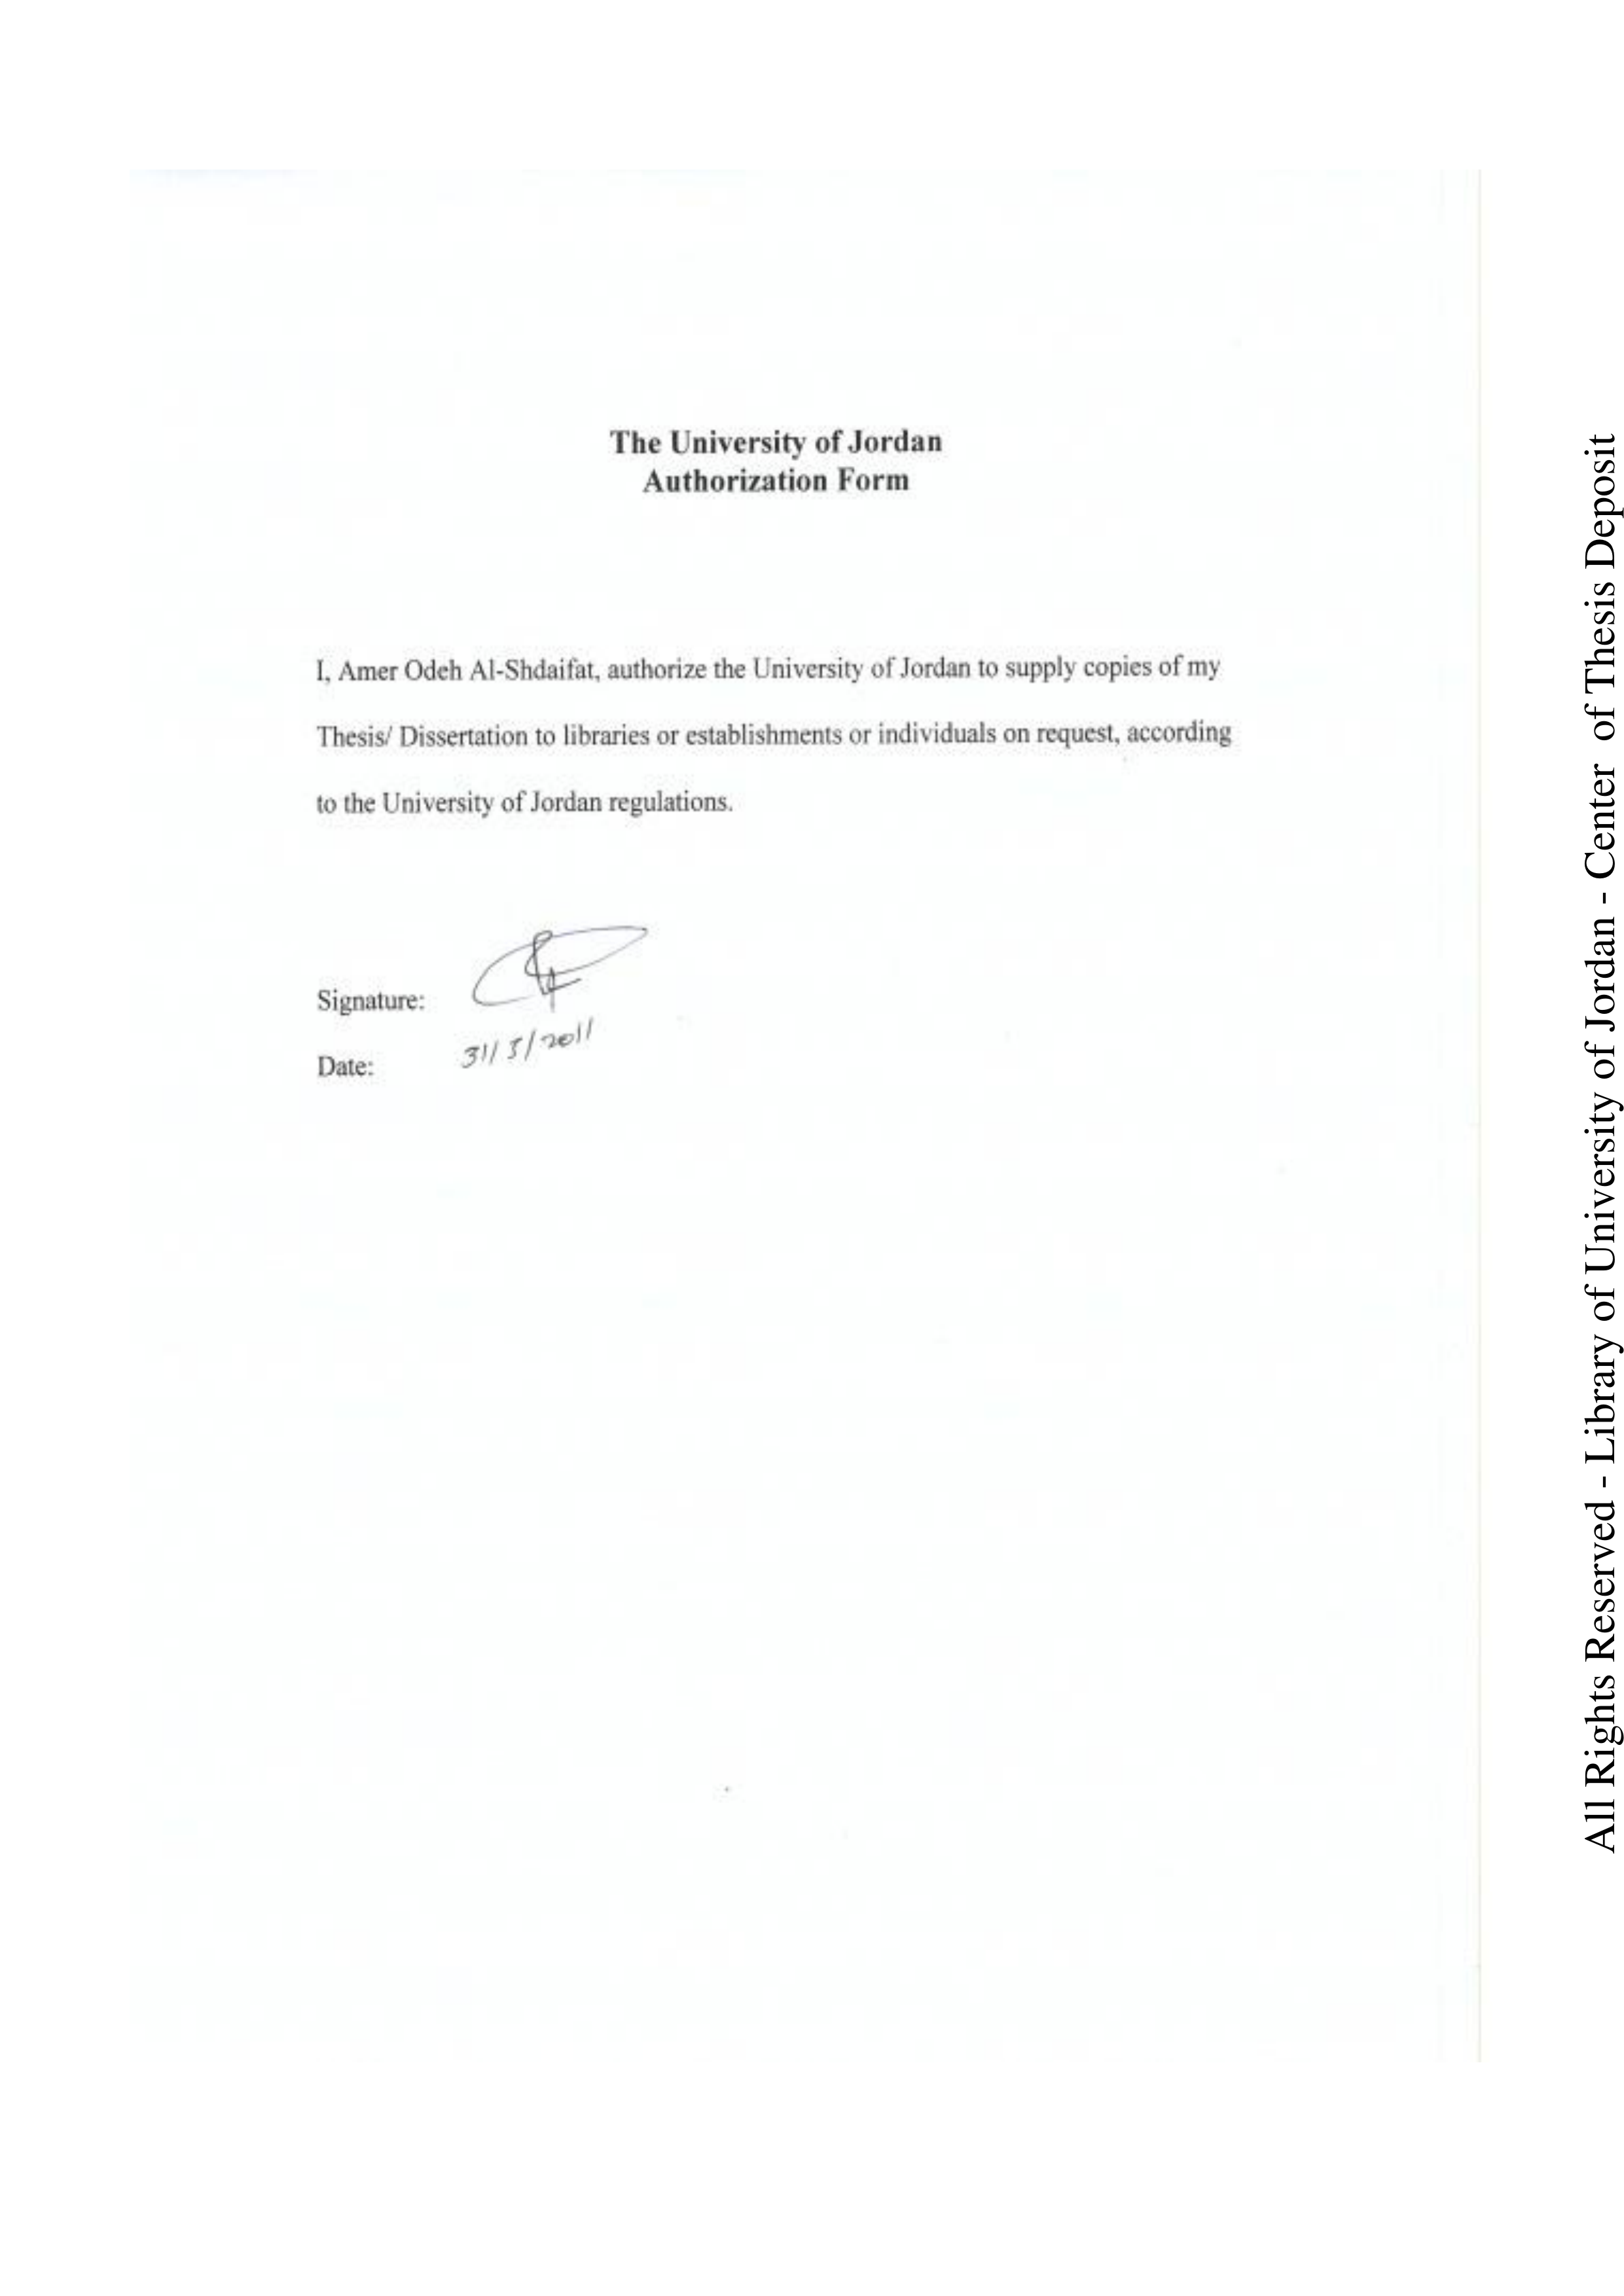 The University of Jordan
Authorization Form
I, Amer Odeh Al-Shdaifat, authorize the University of Jordan to supply copies of my
Thesis/ Dissertation to libraries or establishments or individuals on request, according
to the University of Jordan regulations.
Signature:
Date: 31/ 5/ 2011
All Rights Reserved - Library of University of Jordan - Center of Thesis Deposit